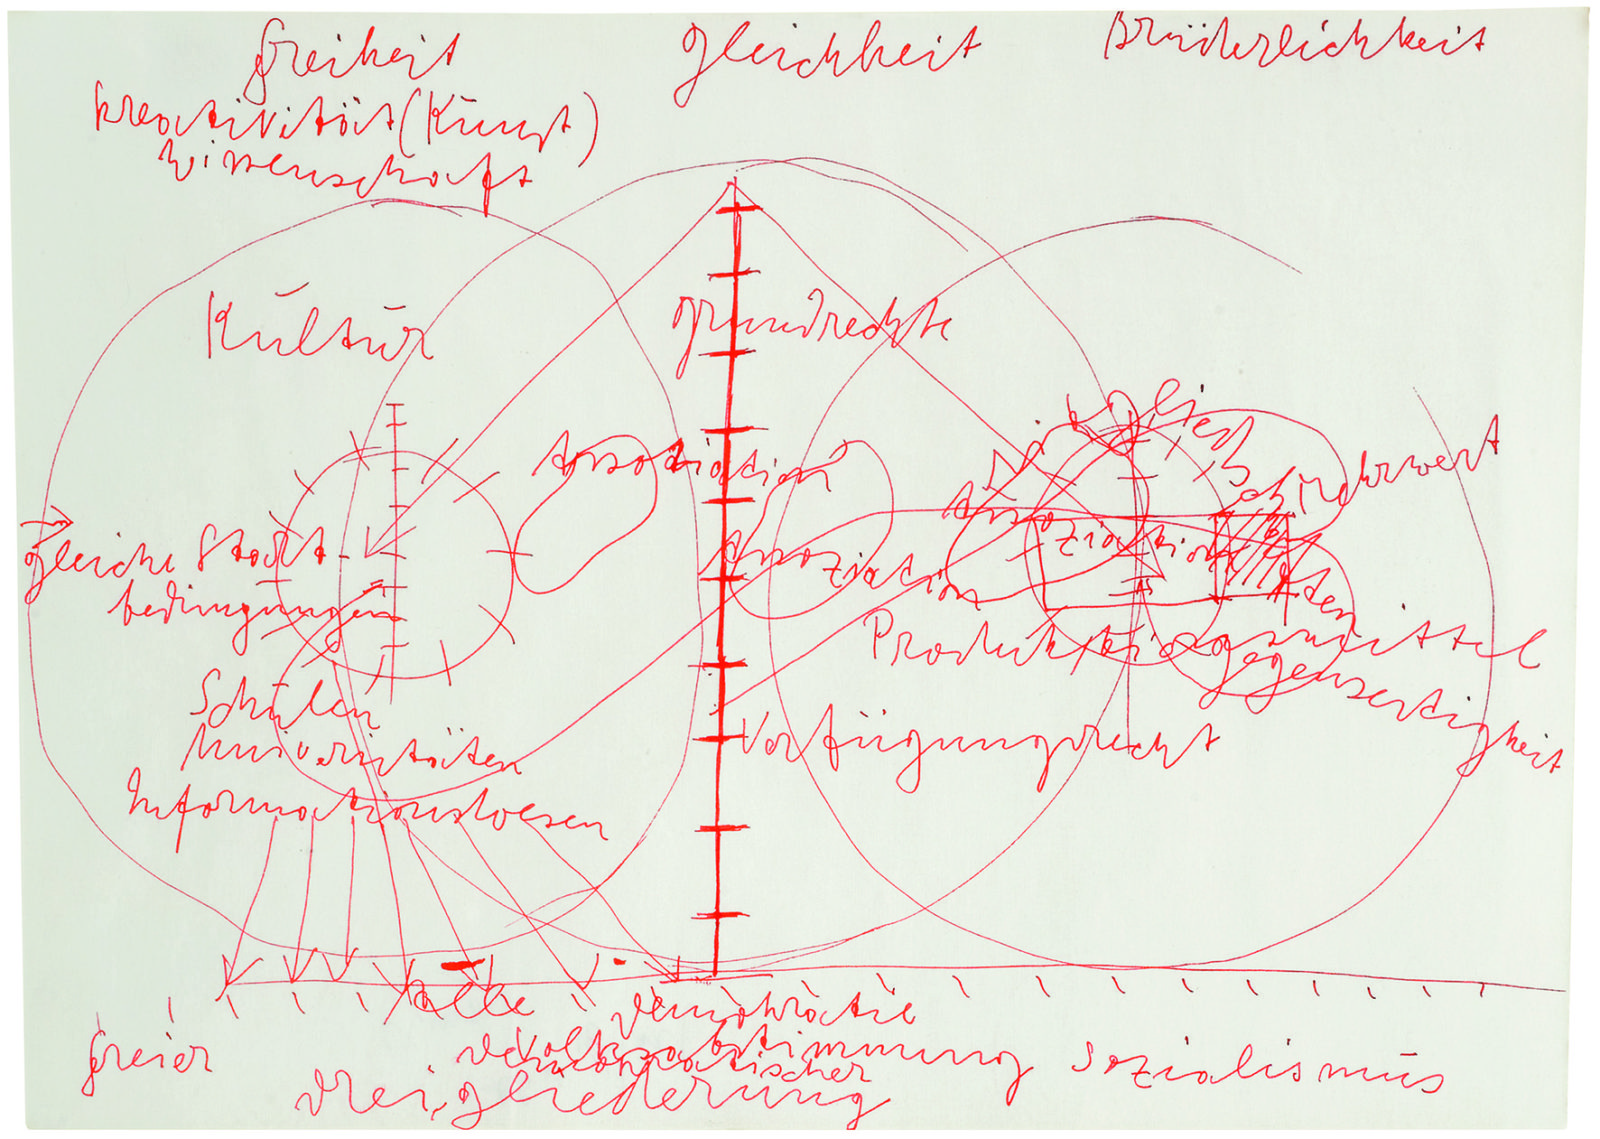 Freiheit
Gleichheit
Brüderlichkeit
Kreativität (Kunst)
Wissenschaft
Kultur
Grundrechte
Assoziation
Mehrwert
Assoziation
Assoziation
gleiche Start
bedingungen
Produktionsmittel
gegenseitigkeit
Schulen
Universitäten
Informationswesen
Verfügungsrecht
alle
Demokratie
Volksabstimmung
freier
demokratischer
Sozialismus
Dreigliederung